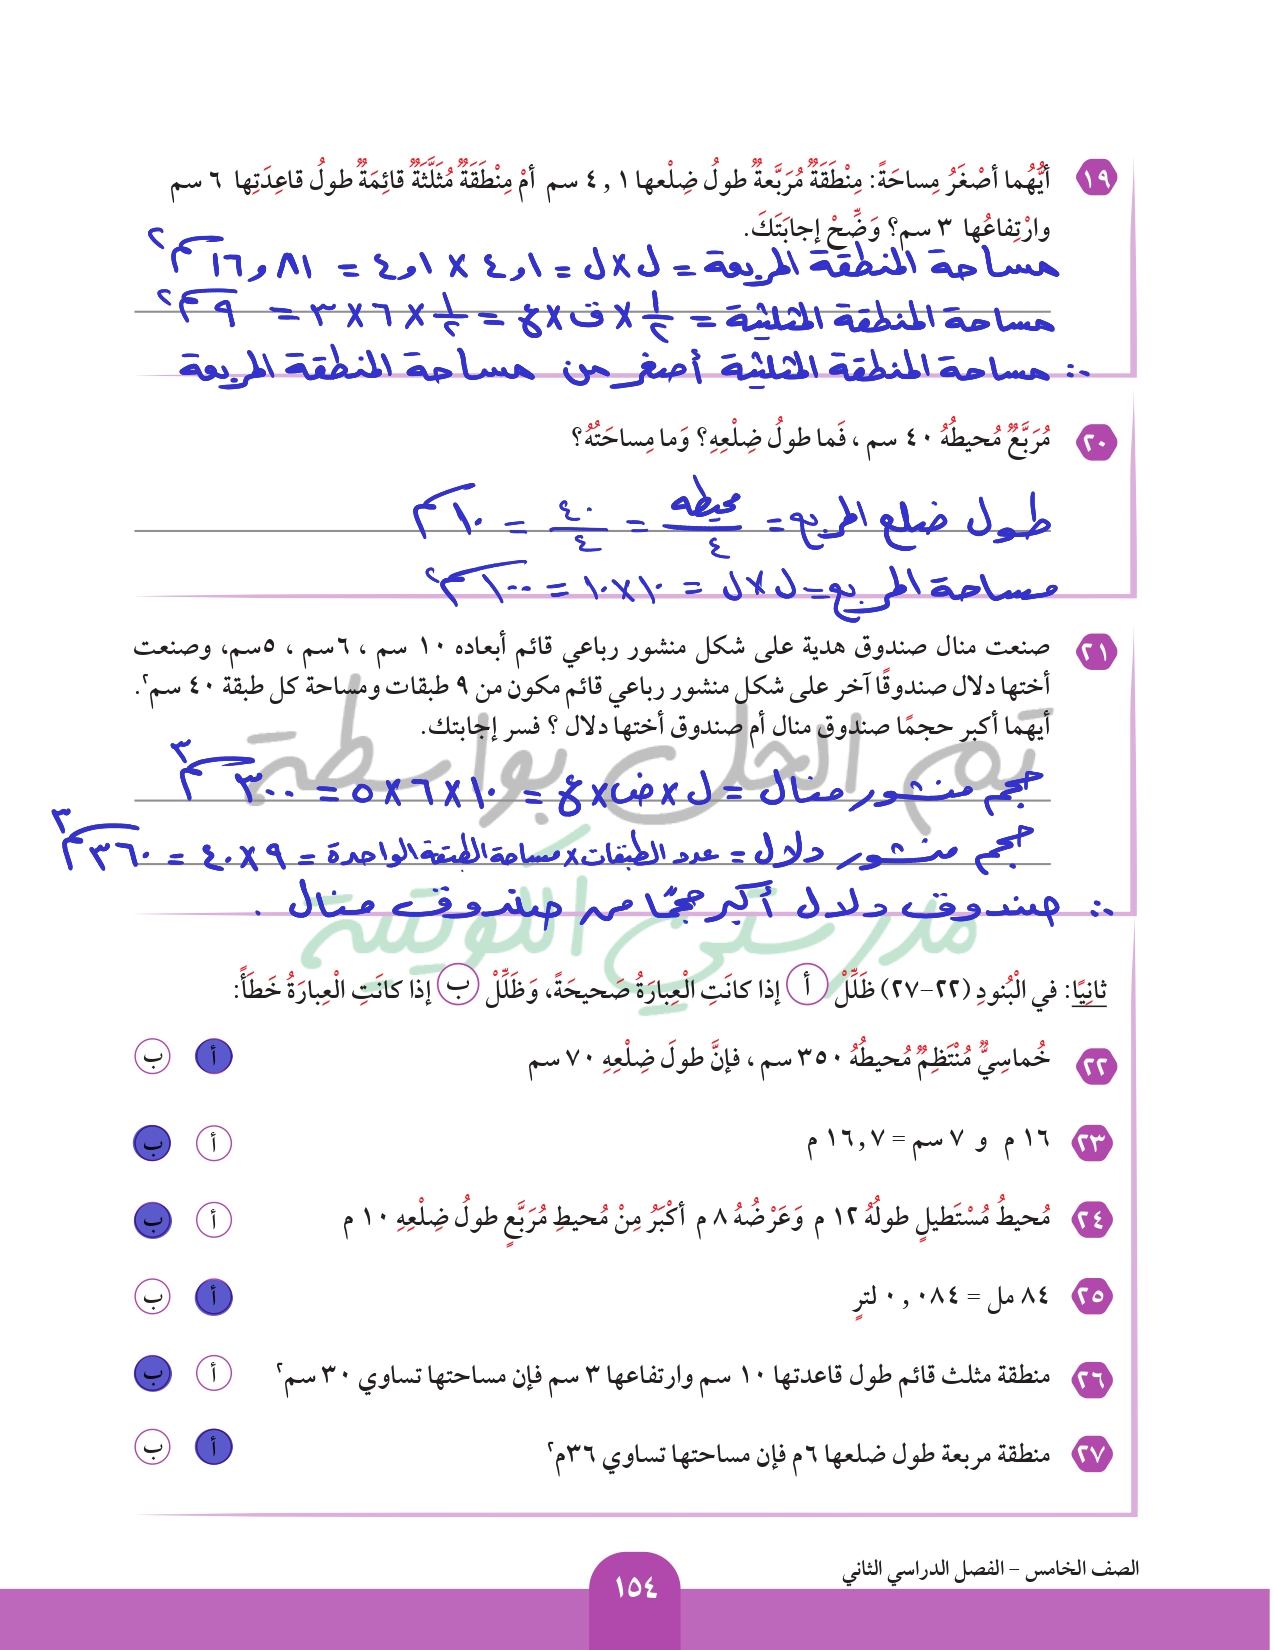 ١٩ أيُّهُما أصْغَرُ مِساحَةً: مِنْطَقَةٌ مُرَبَّعةٌ طولُ ضِلْعها ٤,١ سم أمْ مِنْطَقَةٌ مُثَلَّثَةٌ قائِمَةٌ طولُ قاعِدَتِها ٦ سم
وارْتِفاعُها ٣ سم؟ وَضِّحْ إجابَتَكَ.
مساحة المنطقة المربعة = ل × ل = ٤,١ × ٤,١ = ١٦,٨١ سم٢
مساحة المنطقة المثلثية = ١/٢ × ق × ع = ١/٢ × ٦ × ٣ = ٩ سم٢
∴ مساحة المنطقة المثلثية أصغر من مساحة المنطقة المربعة
٢٠ مُرَبَّعٌ مُحيطُهُ ٤٠ سم ، فَما طولُ ضِلْعِهِ؟ وَما مِساحَتُهُ؟
طول ضلع المربع = محيطه/٤ = ٤٠/٤ = ١٠ سم
مساحة المربع = ل × ل = ١٠ × ١٠ = ١٠٠ سم٢
٢١ صنعت منال صندوق هدية على شكل منشور رباعي قائم أبعاده ١٠ سم ، ٦سم ، ٥سم، وصنعت
أختها دلال صندوقًا آخر على شكل منشور رباعي قائم مكون من ٩ طبقات ومساحة كل طبقة ٤٠ سم٢.
أيهما أكبر حجمًا صندوق منال أم صندوق أختها دلال ؟ فسر إجابتك.
تم الحل بواسطة
حجم منشور منال = ل × ض × ع = ١٠ × ٦ × ٥ = ٣٠٠ سم٣
حجم منشور دلال = عدد الطبقات × مساحة الطبقة الواحدة = ٩ × ٤٠ = ٣٦٠ سم٣
∴ صندوق دلال أكبر حجمًا من صندوق منال .
مدرستي الكويتية
ثانِيًا: في الْبُنودِ (٢٢-٢٧) ظَلِّلْ أ إذا كانَتِ الْعِبارَةُ صَحيحَةً، وَظَلِّلْ ب إذا كانَتِ الْعِبارَةُ خَطَأً:
٢٢ خُماسِيٌّ مُنْتَظِمٌ مُحيطُهُ ٣٥٠ سم ، فإنَّ طولَ ضِلْعِهِ ٧٠ سم أ ب
٢٣ ١٦ م و ٧ سم = ١٦,٧ م أ ب
٢٤ مُحيطُ مُسْتَطيلٍ طولُهُ ١٢ م وَعَرْضُهُ ٨ م أكْبَرُ مِنْ مُحيطِ مُرَبَّعٍ طولُ ضِلْعِهِ ١٠ م أ ب
٢٥ ٨٤ مل = ٠,٠٨٤ لترٍ أ ب
٢٦ منطقة مثلث قائم طول قاعدتها ١٠ سم وارتفاعها ٣ سم فإن مساحتها تساوي ٣٠ سم٢ أ ب
٢٧ منطقة مربعة طول ضلعها ٦م فإن مساحتها تساوي ٣٦م٢ أ ب
الصف الخامس – الفصل الدراسي الثاني
١٥٤